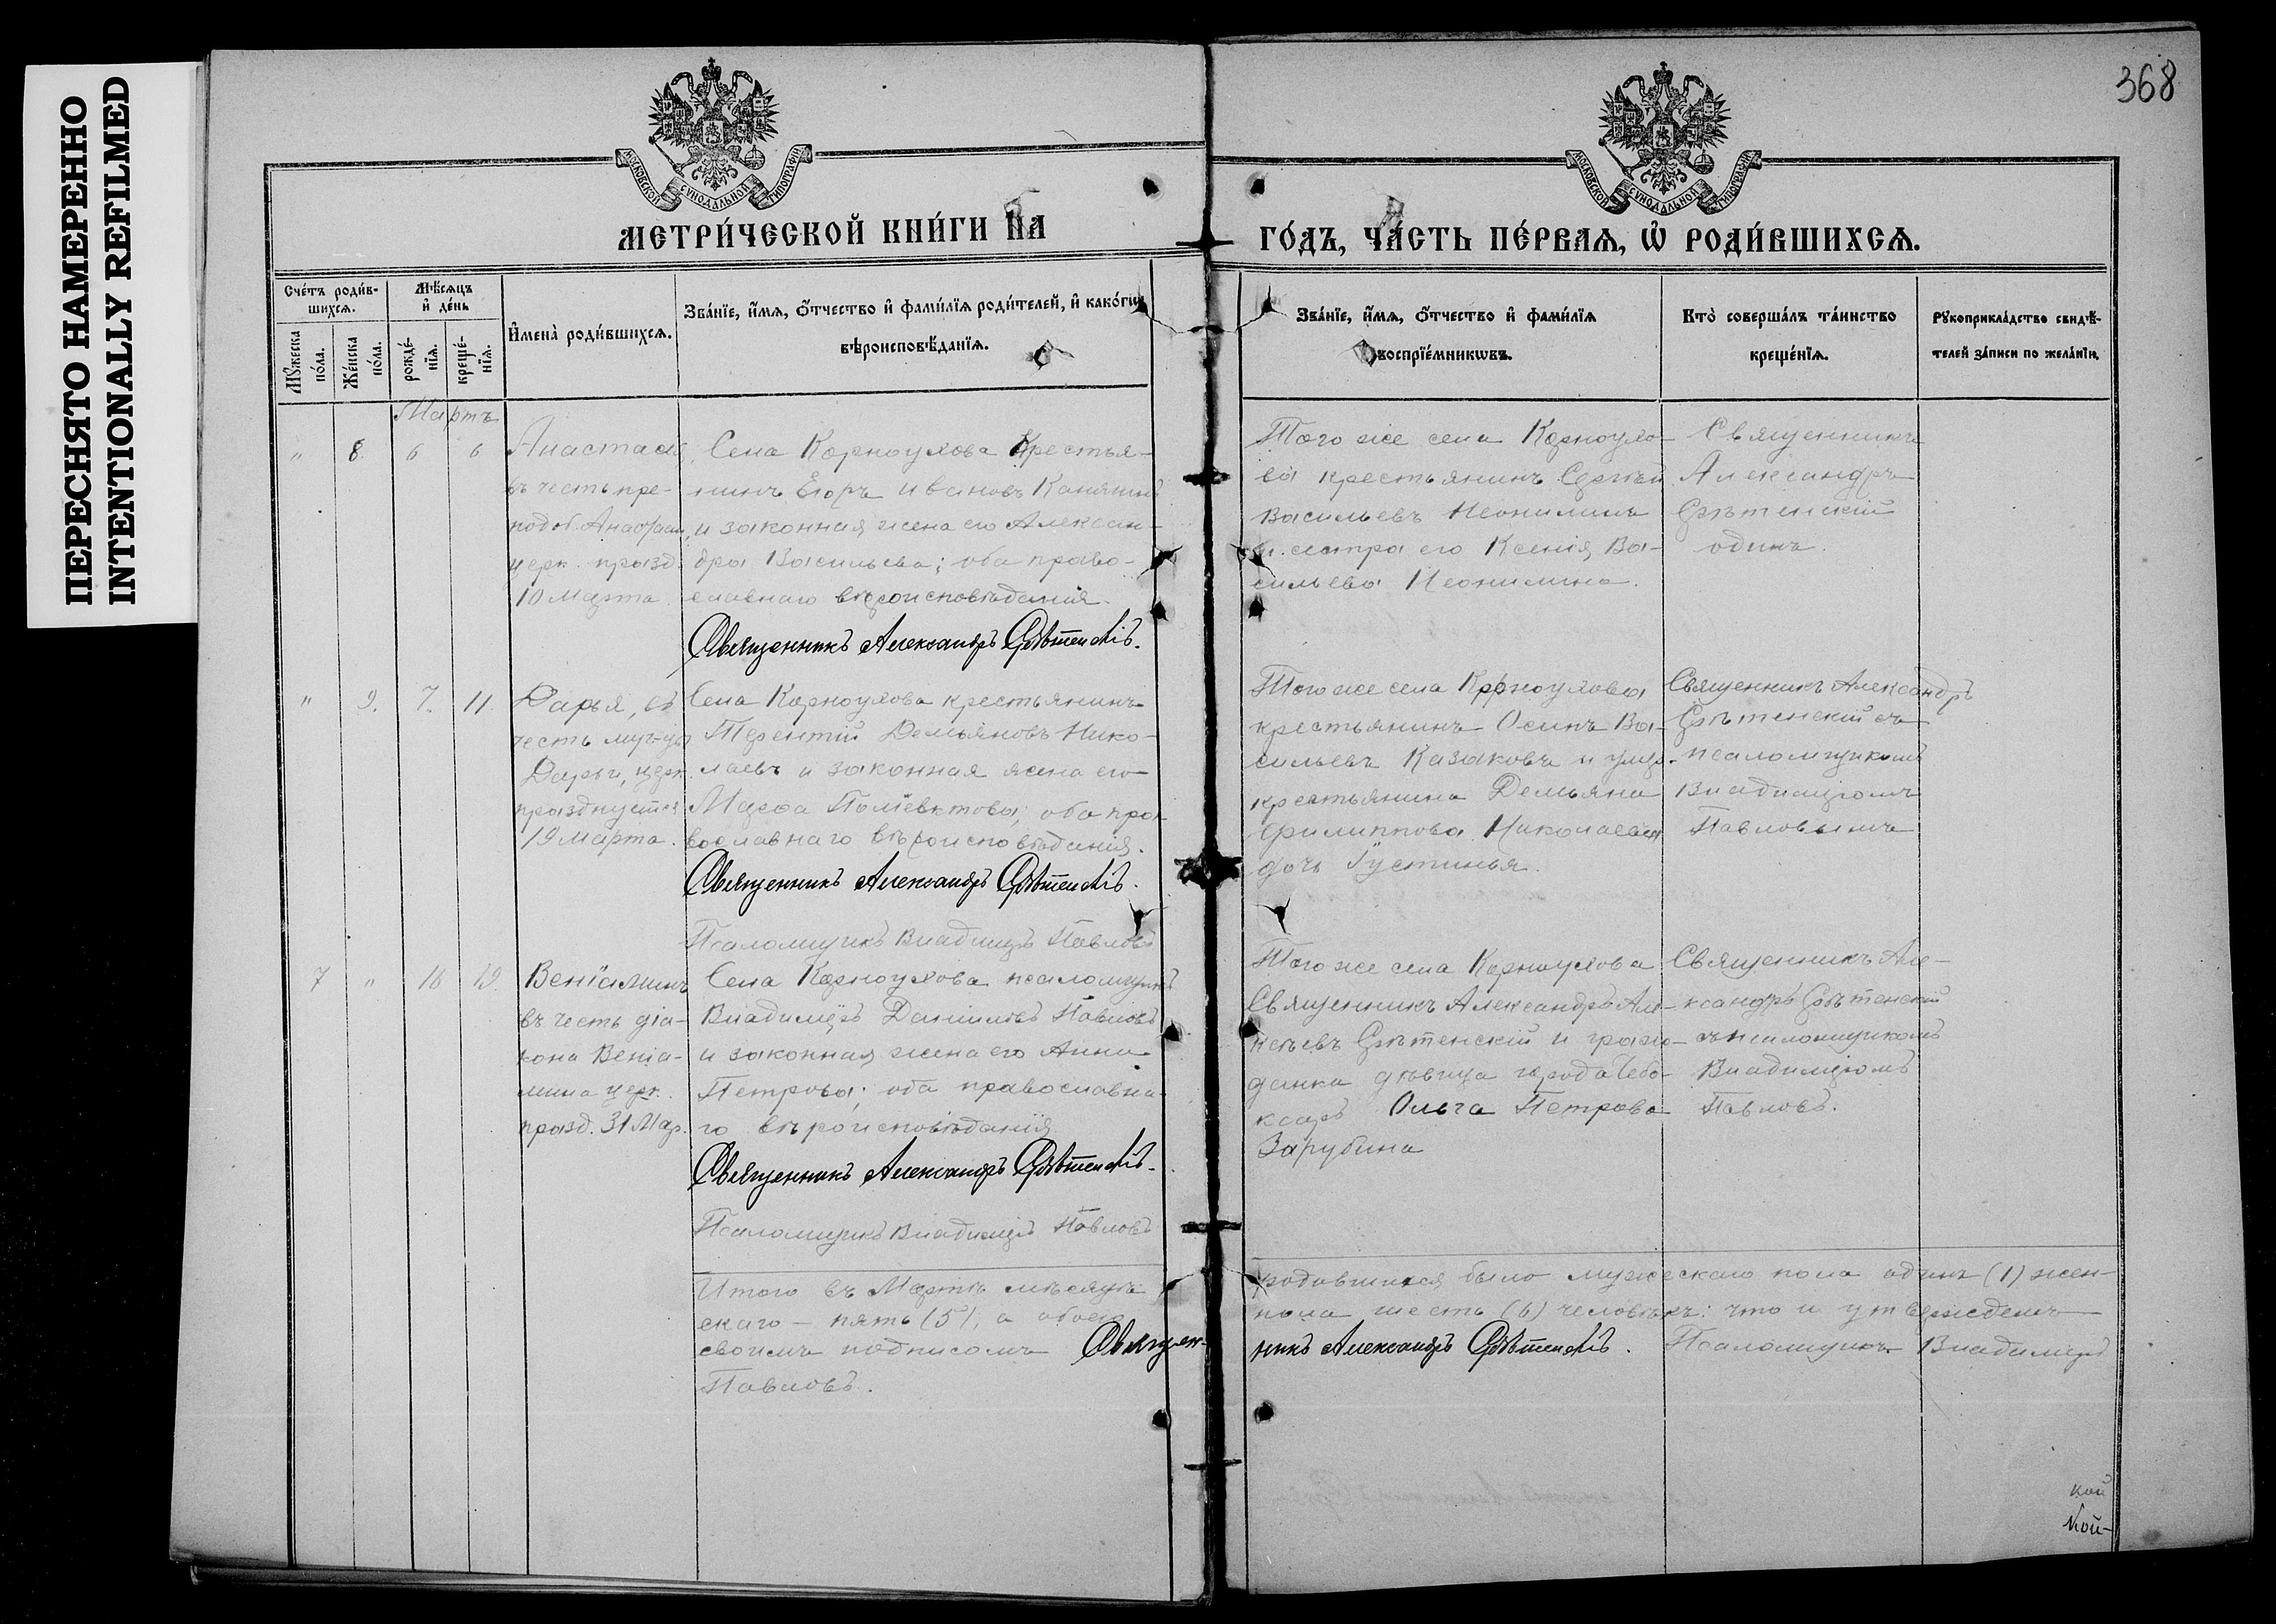 ПЕРЕСНЯТО НАМЕРЕННО
INTENTIONALLY REFILMED
368
МОСКОВСКОЙ СѴНОДАЛЬНОЙ ТИПОГРАФІИ
МОСКОВСКОЙ СѴНОДАЛЬНОЙ ТИПОГРАФІИ
МЕТРИ́ЧЕСКОЙ КНИ́ГИ НА
ГО́ДЪ, ЧА́СТЬ ПЕ́РВАѦ, Ѡ РОДИ́ВШИХСѦ.
Сче́тъ роди́в-
шихсѧ.
Мꙋ́жеска
по́ла.
Же́нска
по́ла.
Мѣ́сѧцъ
и҆ де́нь
рожде́-
нїѧ.
креще́-
нїѧ.
И҆мена̀ роди́вшихсѧ.
Зва́нїе, и҆́мѧ, ѻ҆́тчество и҆ фами́лїѧ роди́телей, и҆ како́гѡ
вѣроисповѣ́данїѧ.
Зва́нїе, и҆́мѧ, ѻ҆́тчество и҆ фами́лїѧ
воспрїе́мникѡвъ.
Кто̀ соверша́лъ та́инство
креще́нїѧ.
Рꙋкоприкла́дство свидѣ́-
телей за́писи по жела́нїю.
Мартъ
" 8. 6 6
Анастасія
въ честь пре-
подоб. Анастасіи,
церк. празд.
10 Марта.
Села Корноухова Крестья-
нинъ Егоръ Ивановъ
и законная жена его Алексан-
дра Васильева; оба право-
славнаго вѣроисповѣданія.
Священникъ Александръ Срѣтенскій.
Того же села Корноухо-
ва крестьянинъ Сергѣй
Васильевъ Неонилинъ
и сестра его Ксенія Ва-
сильева Неонилина.
Священникъ
Александръ
Срѣтенскій
одинъ.
" 9. 7. 11.
Дарья, въ
честь муч-цы
Дарьи, церк.
празднуется
19 Марта.
Села Корноухова крестьянинъ
Терентій Демьяновъ Нико-
лаевъ и законная жена его
Марѳа Поліевктова; оба пра-
вославнаго вѣроисповѣданія.
Священникъ Александръ Срѣтенскій.
Псаломщикъ Владиміръ Павловъ
Того же села Корноухова
крестьянинъ Осипъ Ва-
сильевъ Казаковъ и умер.
крестьянина Демьяна
Филиппова Николаева
дочь Іустинья.
Священникъ Александръ
Срѣтенскій съ
псаломщикомъ
Владиміромъ
Павловымъ
7 " 18 19.
Веніаминъ
въ честь діа-
кона Веніа-
мина церк.
празд. 31 Мар.
Села Корноухова псаломщикъ
Владиміръ Даниловъ Павловъ
и законная жена его Анна
Петрова; оба православна-
го вѣроисповѣданія
Священникъ Александръ Срѣтенскій.
Псаломщикъ Владиміръ Павловъ
Того же села Корноухова
Священникъ Александръ Але-
ксѣевъ Срѣтенскій и граж-
данка дѣвица города Чебо-
ксаръ Ольга Петрова
Зарубина
Священникъ Але-
ксандръ Срѣтенскій
съ псаломщикомъ
Владиміромъ
Павловъ.
Итого въ Мартѣ мѣсяцѣ родившихся было мужескаго пола одинъ (1) жен-
скаго – пять (5), а обоего пола шесть (6) человѣкъ: что и утверждемъ
своимъ подписомъ Священ-никъ Александръ Срѣтенскій. Псаломщикъ Владиміръ
Павловъ.
кой
кой-